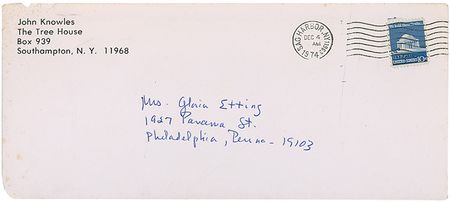 John Knowles
The Tree House
Box 939
Southampton, N. Y. 11968
SAG HARBOR, NY
DEC 4
AM
1974
10c
Mrs. Gloria Etting
1927 Panama St.
Philadelphia, Penna- 19103